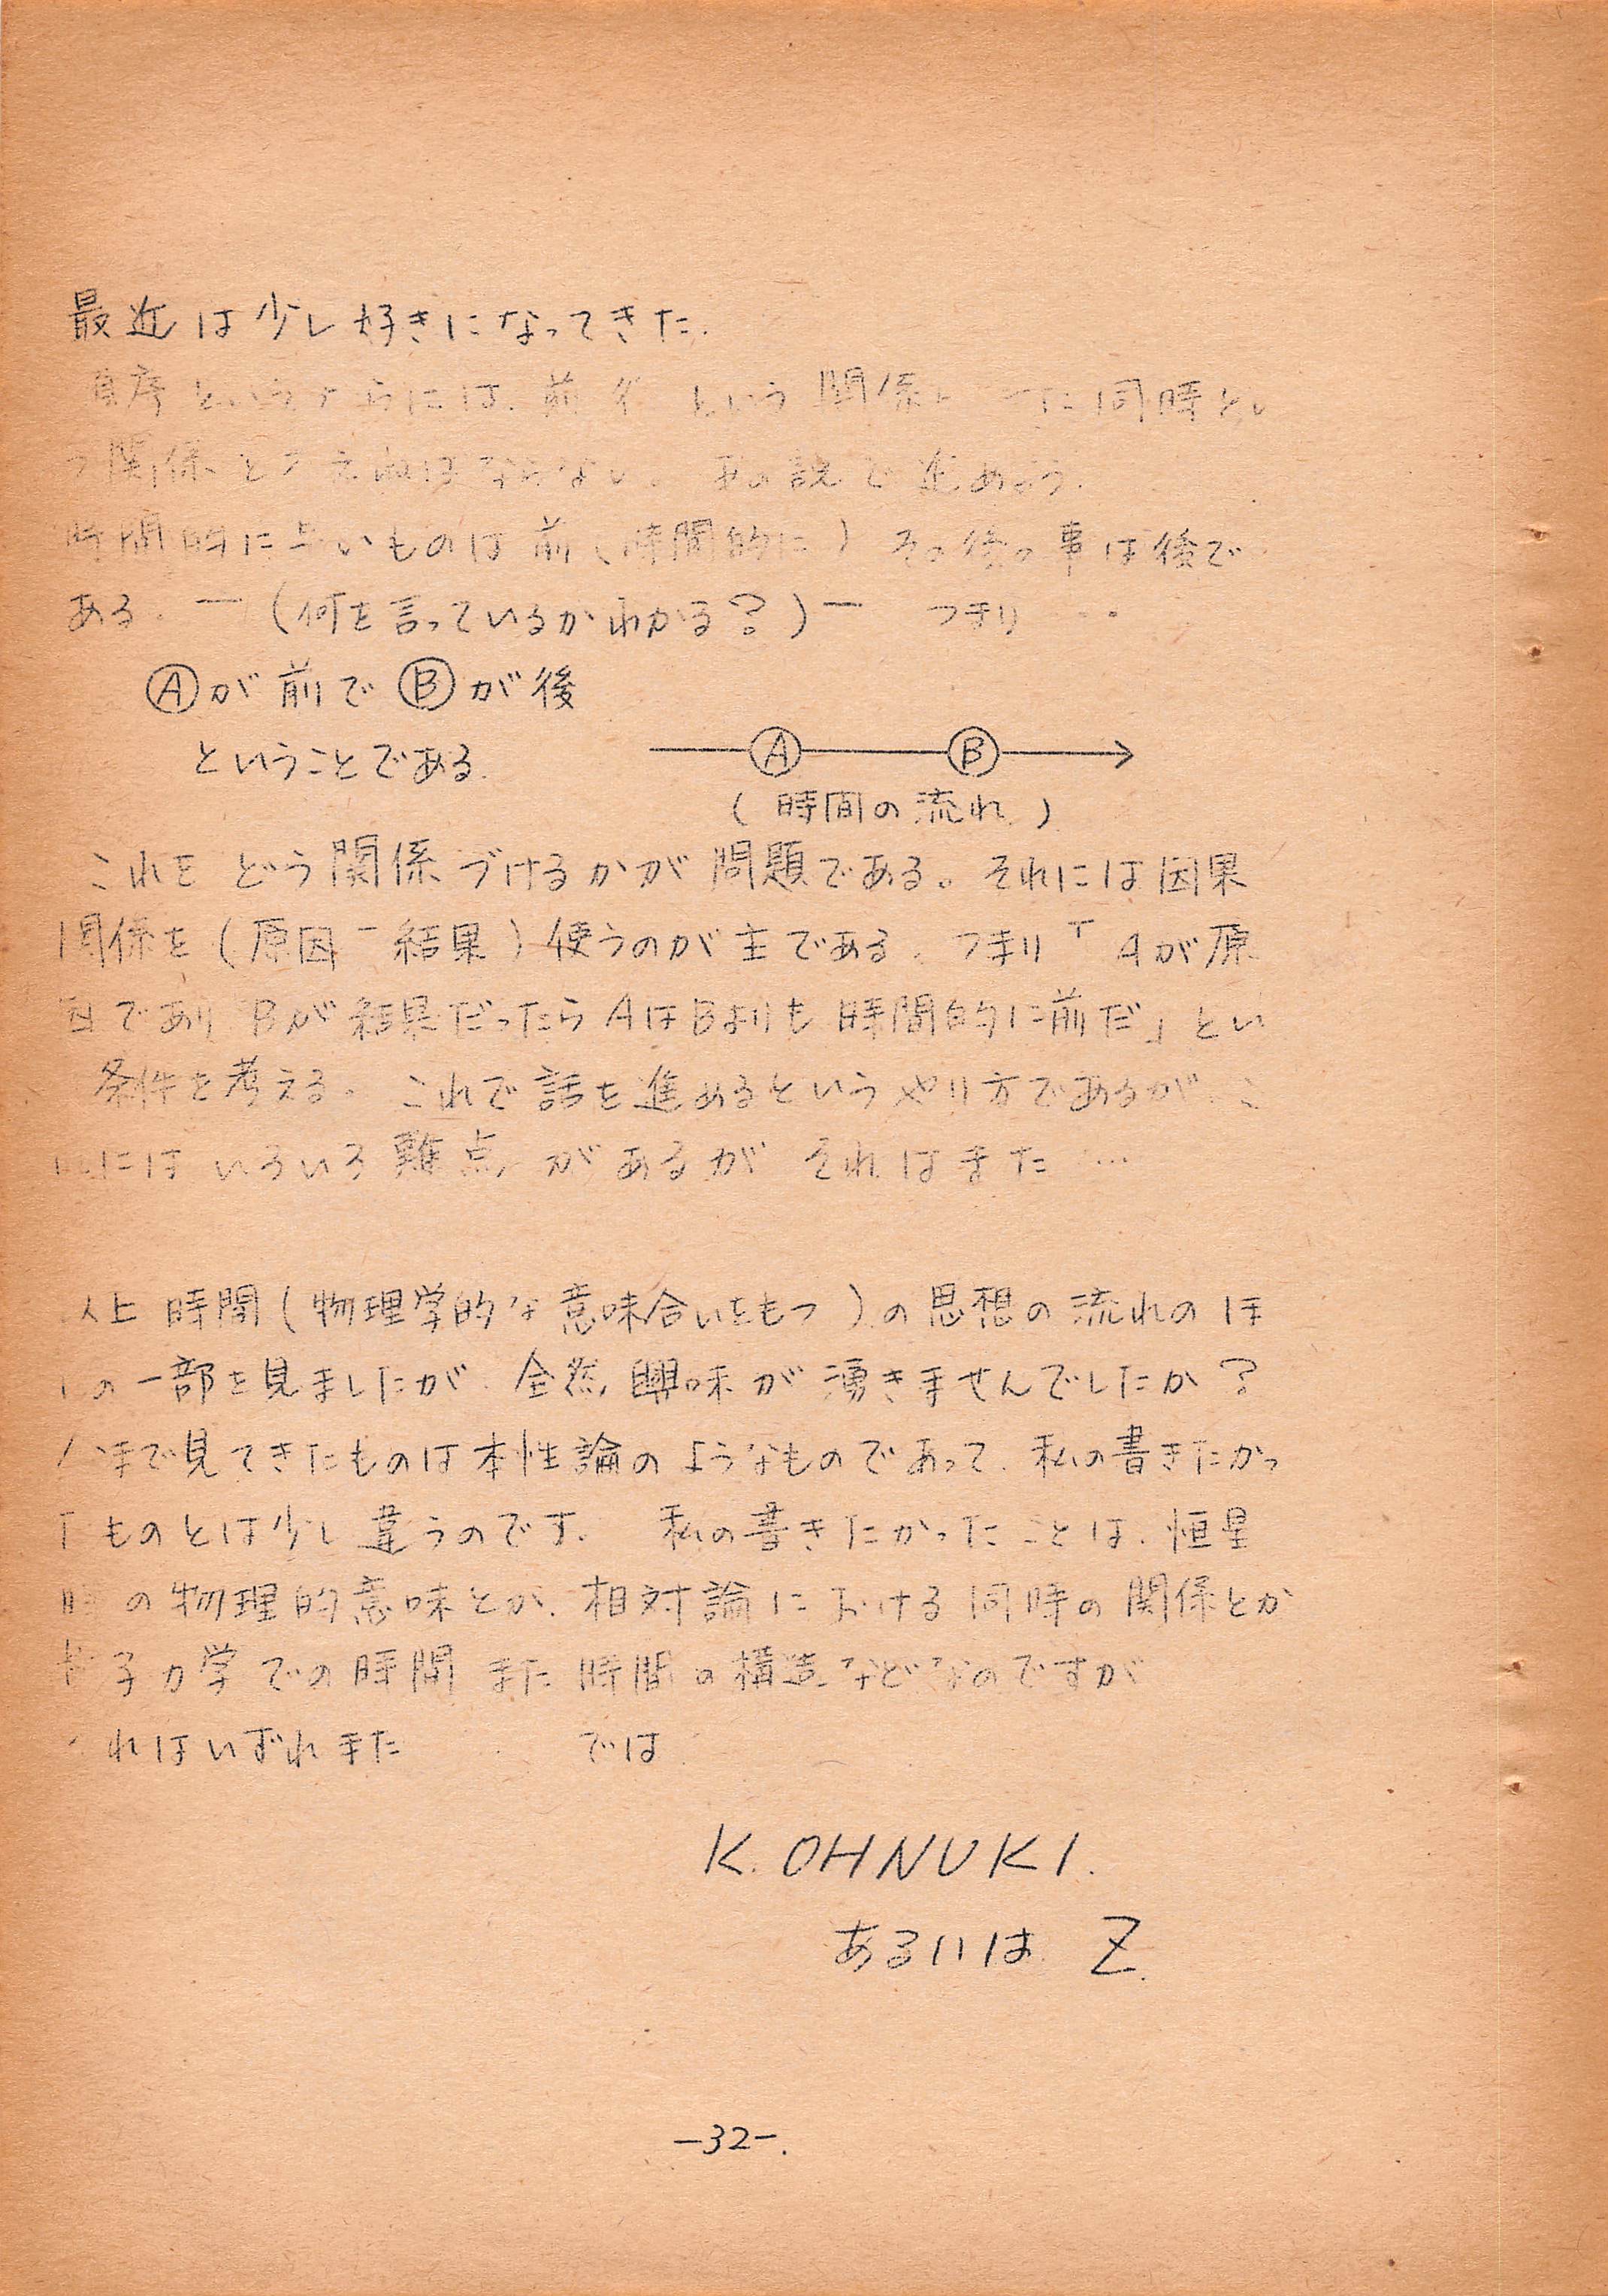 最近は少し好きになってきた.
順序というからには、前後という関係と また同時とい
う関係を考えねばならない。 私の説で進めよう.
時間的に早いものは前(時間的に) その後の事は後で
ある. ー (何を言っているかわかる?) ー つまり …
Ⓐが前でⒷが後
ということである.
A B
( 時間の流れ )
これを どう関係づけるかが問題である。それには因果
関係を(原因ー結果)使うのが主である. つまり「Aが原
因であり Bが結果だったらAはBよりも時間的に前だ」とい
条件を考える。 これで話を進めるというやり方であるが、こ
れには いろいろ難点があるが それはまた …
以上 時間(物理学的な意味合いをもつ)の思想の流れのほ
んの一部を見ましたが、全然興味が湧きませんでしたか?
今まで見てきたものは本性論のようなものであって、私の書きたかっ
たものとは少し違うのです. 私の書きたかったことは、恒星
時の物理的意味とか、相対論における同時の関係とか
量子力学での時間 また時間の構造などなのですが
それはいずれまた では
K. OHNUKI.
あるいは Z.
-32-.